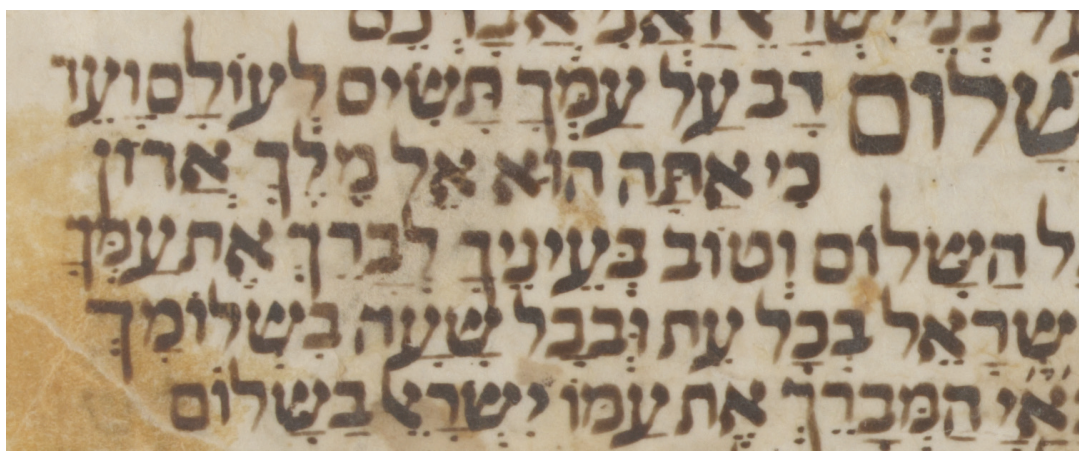 בְּנֵי יִשְׂרָאֵל וַאֲנִי אֲבָרְכֵם
שָׁלוֹם רָב עַל עַמְּךָ תָּשִׂים לְעוֹלָם וָעֶד
כִי אַתָּה הוּא אֵל מֶלֶךְ אֲדוֹן
הַשָּׁלוֹם וְטוֹב בְּעֵינֶיךָ לְבָרֵךְ אֶת עַמְּךָ
יִשְׂרָאֵל בְּכָל עֵת וּבְכָל שָׁעָה בִשְׁלוֹמֶךָ
בָּאֵ֗י הַמְּבָרֵךְ אֶת עַמּוֹ יִשְׂרָאֵל בַּשָּׁלוֹם